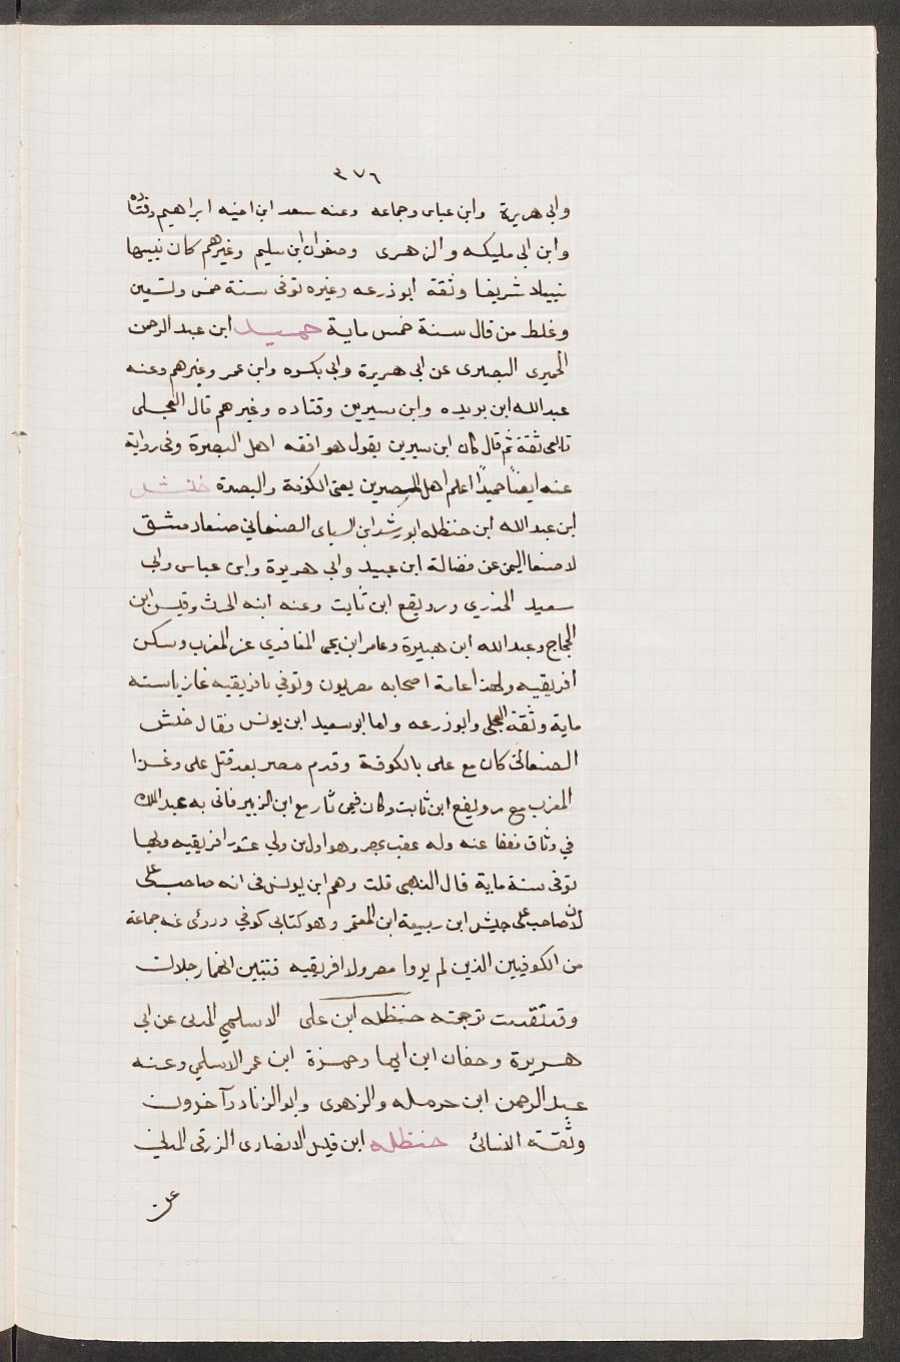 ٣٧٦
وابي هريرة وابن عباس وجماعه وعنه سعد ابن ابراهيم وقتاده
وابن ابي مليكه والزهرى وصفوان ابن سليم وغيرهم كان فقيها
نبيلا شريفا وثقه ابوذرعه وغيره توفى سنة خمس وتسعين
وغلط من قال سنة خمس ماية حميد ابن عبد الرحمن
الحميرى البصرى عن ابى هريرة وابى بكره وابن عمر وغيرهم وعنه
عبد الله ابن بريده وابن سيرين وقتاده وغيرهم قال العجلى
تابعى ثقة ثم قال كان ابن سيرين يقول هو افقه اهل البصرة وفى رواية
عنه ايضاً حميداً اعلم اهل المصرين يعنى الكوفة والبصرة حنش
ابن عبد الله ابن حنظله ابو رشد ابن السباى الصنعاني صنعاء دمشق
لا صنعا اليمن عن فضالة ابن عبيد وابي هريرة وابن عباس وابى
سعيد الخدري ورويفع ابن ثابت وعنه ابنه الحرث وقيس ابن
الحجاج وعبد الله ابن هبيرة وعامر ابن يحيى المعافري غزا المغرب وسكن
أفريقيه ولهذا عامة اصحابه مصريون وتوفي بافريقيه غازيا سنه
ماية وثقة العجلى وابوزرعه واما ابو سعيد ابن يونس فقال حنش
الصنعانى كان مع على بالكوفة وقدم مصر بعد قتل على وغزا
المغرب مع رويفع ابن ثابت وكان فيمن ثار مع ابن الزبير فاتى به عبد الملك
في وثاق فعفا عنه وله عقب بمصر وهو اول من ولي عشور افريقيه وبها
توفى سنة ماية قال الذهبى قلت وهم ابن يونس فى انه صاحب على
لان صاحب على حنش ابن ربيعة ابن المعتمر وهو كنانى كوفي وروى عنه جماعة
من الكوفيين الذين لم يروا مصر ولا افريقيه فتبين انهما رجلان
وقد تقدمت ترجمته حنظله ابن على الاسلمي المدنى عن ابى
هريرة وخفاف ابن ايما وحمزة ابن عمر الاسلمي وعنه
عبد الرحمن ابن حرمله والزهرى وابو الزناد وآخرون
وثقة النسائى حنظله ابن قيس الانصارى الزرقى المدني
عن